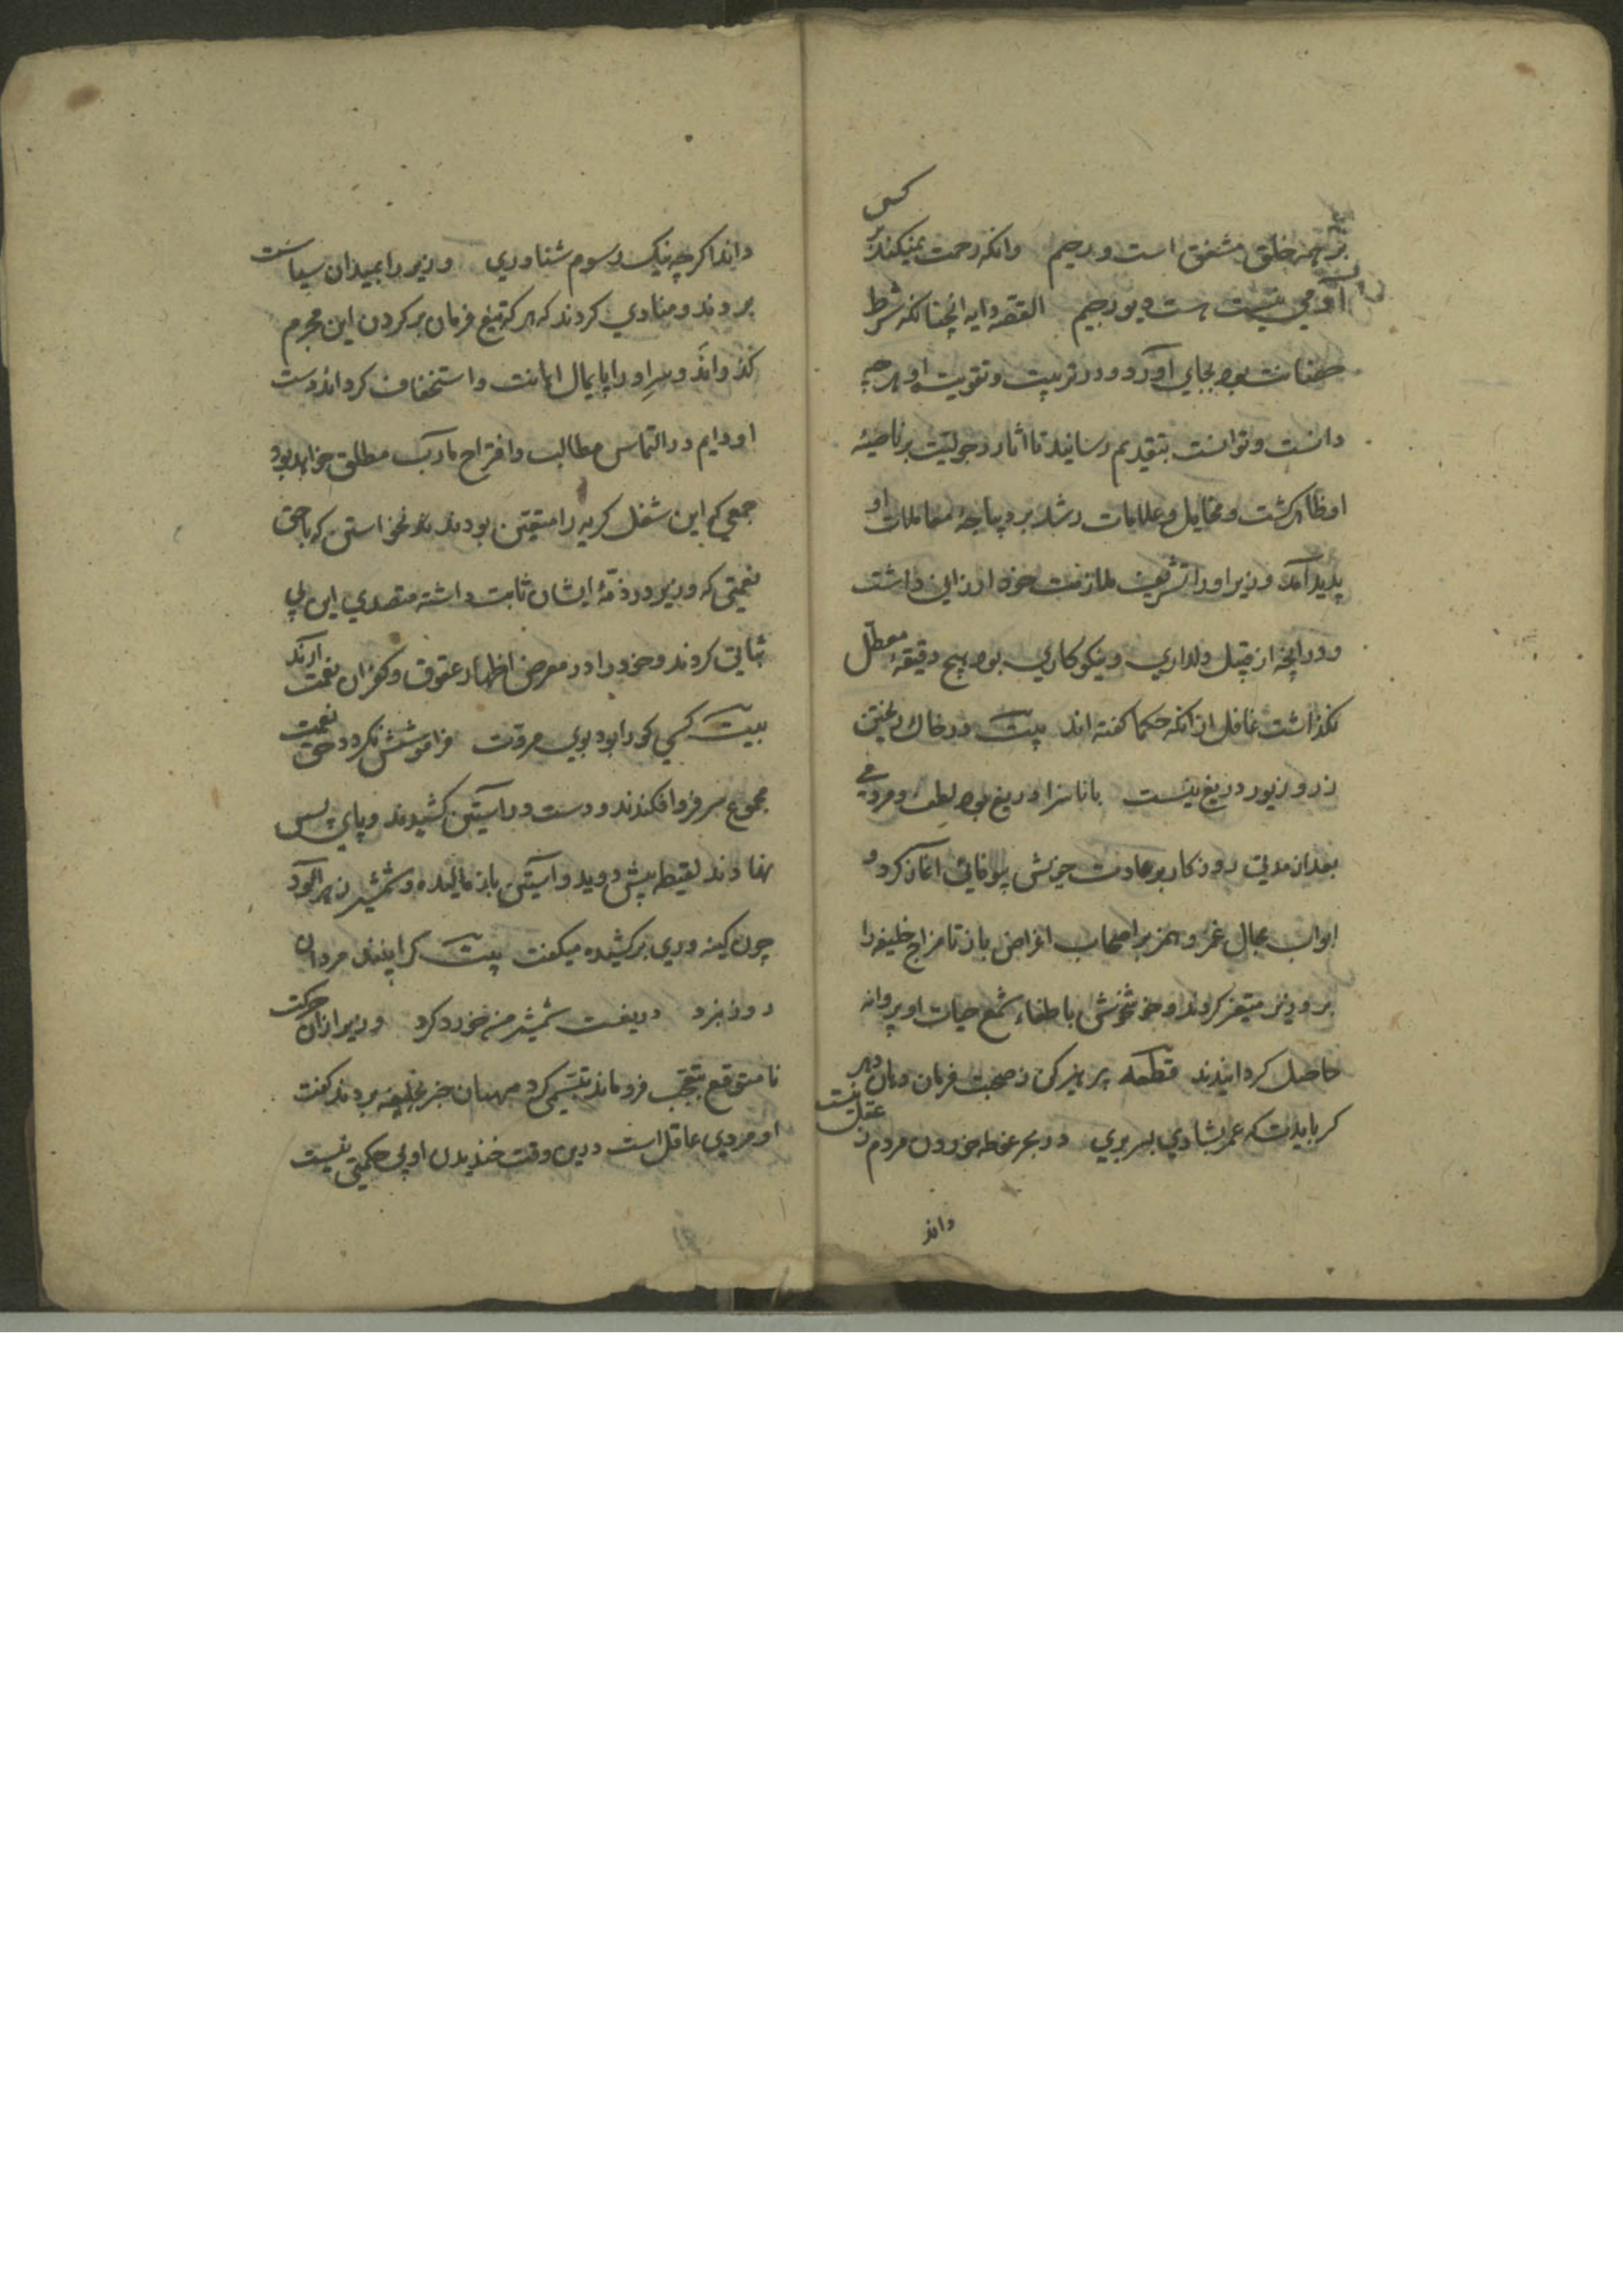 بر همه خلق مشفق است و رحیم وانکه رحمت نمیکند بر کسی
آدمی نیست هست دیو رجیم القصه دایه انچنانکه شرط
حضانت بود بجای آورد و در تربیت و تقویت او هرچه
دانست و توانست بتقدیم رسانید تا اثار رجولیت بر ناصیهٔ
او ظاهر کشت و مخایل و علامات رشد بر دیباجهٔ معاملات او
پدید آمد وزیر او را تشریف ملازمت خود ارزانی داشت
و در انچه از قبیل دلداری و نیکوکاری بود هیچ دقیقهٔ معطل
نکذاشت غافل از انکه حکما کفته اند بیت در خاک ریختن
زر و زیور دریغ نیست با ناسزا دریغ بود لطف و مردمی
بعد از مدتی روزکار بر عادت خویش بیوفائی اغاز کرد و
ابواب مجال غمز و همز بر اصحاب اغراض باز تا مزاج خلیفه را
بر وزیر متغیر کردند و خوشخوشی باطفاء شمع حیات او پروانه
حاصل کردانیدند قطعه پرهیز کن ز صحبت فرمان دهان دهر
کر بایدت که عمر بشادی بسر بری در بحر غوطه خوردن مردم ز عقل نیست
داند
داند اکرچه نیک رسوم شناوری وزیر را بمیدان سیاست
بردند و منادی کردند که هر که تیغ فرمان بر کردن این مجرم
کذراند و سر او را پایمال اهانت و استخفاف کرداند دست
او دایم در التماس مطالب و اقتراح مارب مطلق خواهد بود
جمعی که این شغل کریه را متعین بودند نخواستند که با حق
نعمتی که وزیر در ذمهٔ ایشان ثابت داشته متصدی این بی
ثباتی کردند و خود را در معرض اظهار عقوق و کفران نعمت ارند
بیت کسی کو را بود بوی مروت فراموشش نکردد حق نعمت
مجموع سر فرو افکندند و دست در آستین کشیدند و پای پس
نهادند لقیطه پیش دوید و آستین باز مالیده و شمشیر زهر آلود
چون کینه وری برکشیده میکفت بیت کرا بینند مردان
روز نبرد دریغست شمشیر من خورد کرد وزیر ازان حرکت
نامتوقع بتعجب فروماند تبسمی کرد منهیان خبر بخلیفه بردند کفت
او مردی عاقل است درین وقت خندیدن او بی حکمتی نیست